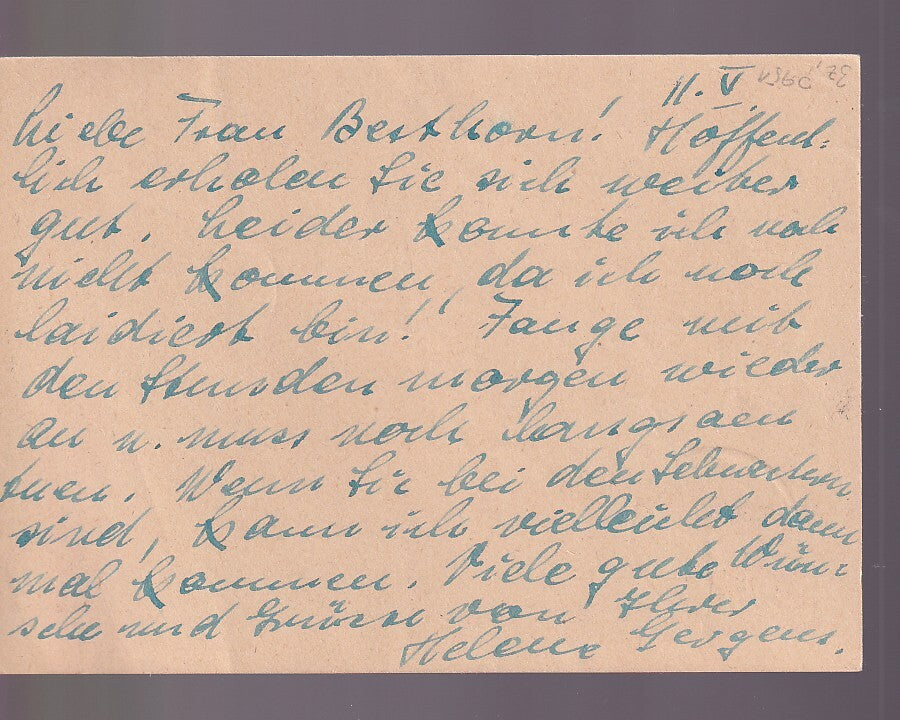 11. V.
Liebe Frau Besthorn! Hoffent-
lich erholen Sie sich weiter
gut. Leider konnte ich noch
nicht kommen, da ich noch
laidiert bin! Fange mit
den Stunden morgen wieder
an u. muss noch langsam
tuen. Wenn Sie bei den Schwestern
sind, kann ich vielleicht dann
mal kommen. Viele gute Wün-
sche und Grüsse von Ihrer
Helene Gergens.